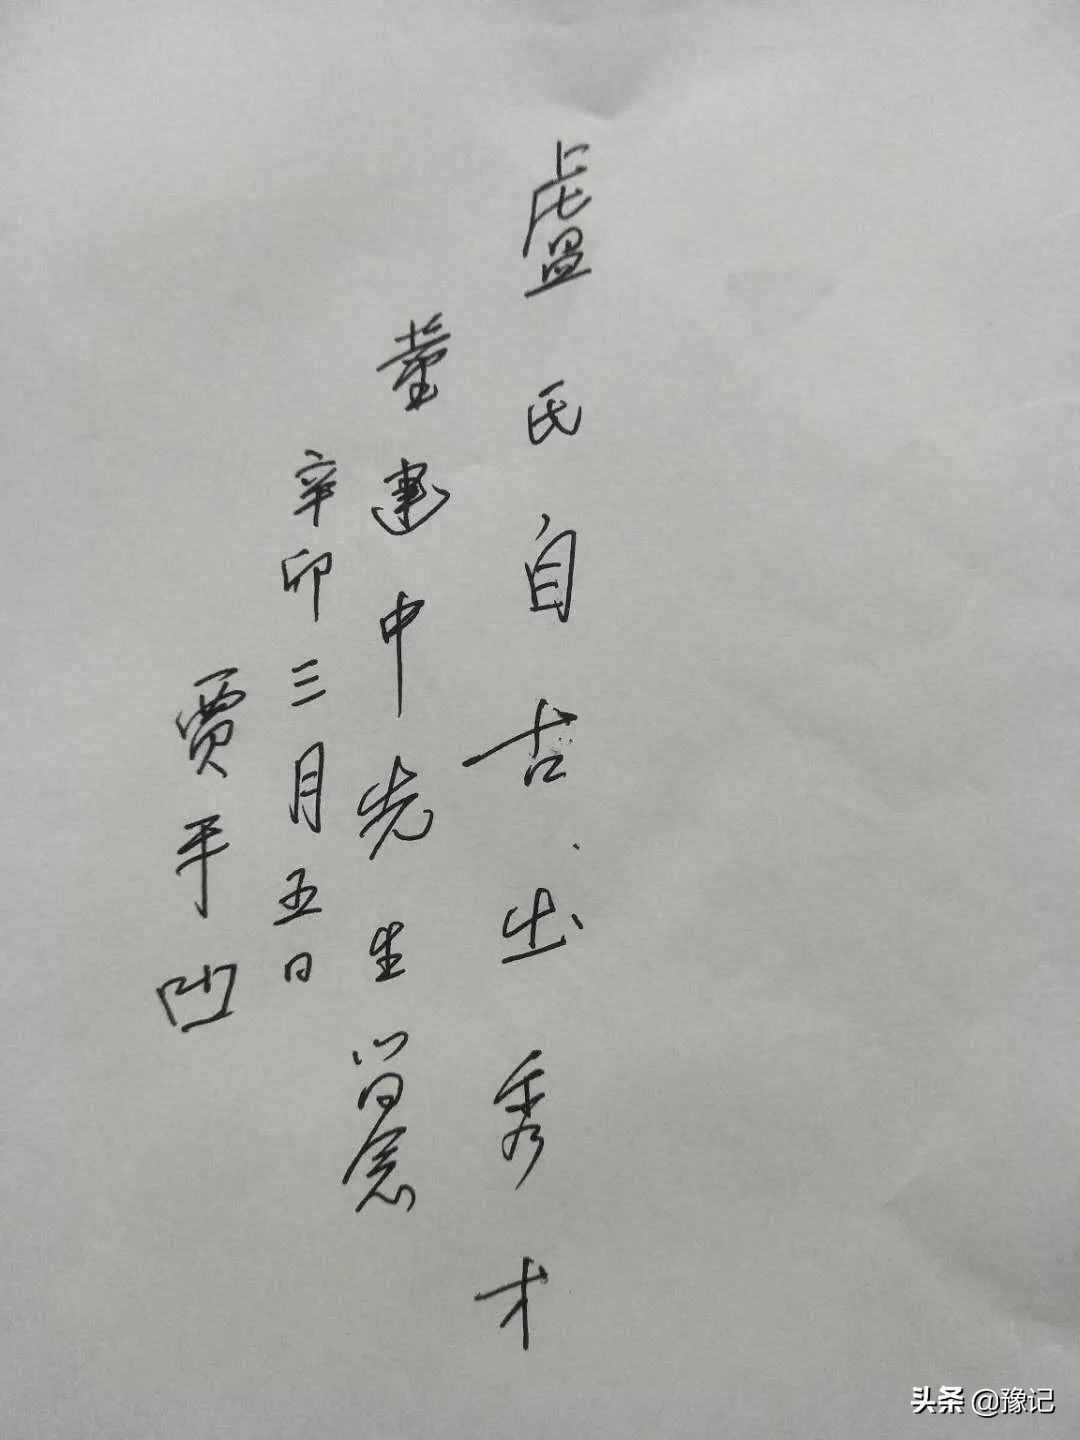 盧氏自古出秀才
董建中先生留念
辛卯三月五日
賈平凹
头条 @豫记